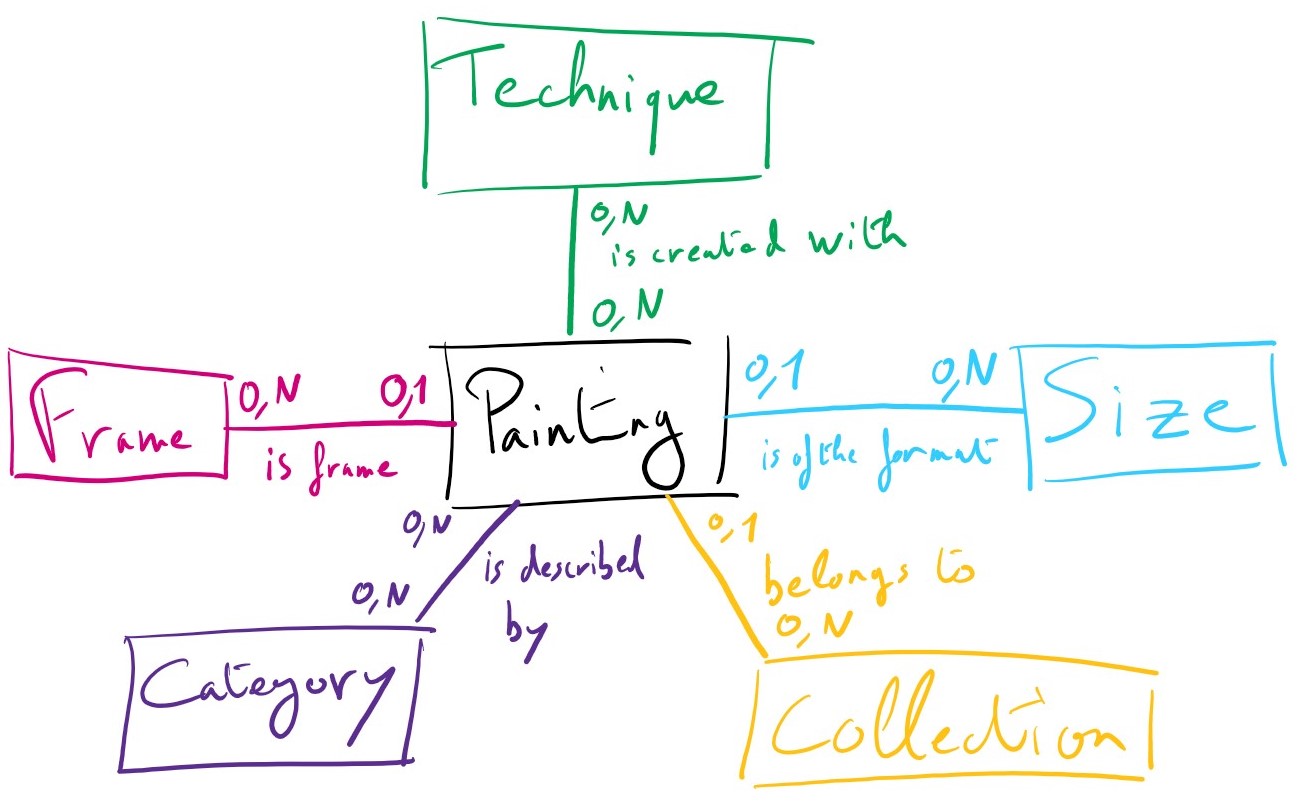 Technique
0,N
is created with
0,N
Frame
0,N
0,1
is frame
Painting
0,1
0,N
is of the format
Size
0,N
is described
by
0,N
Category
0,1
belongs to
0,N
Collection